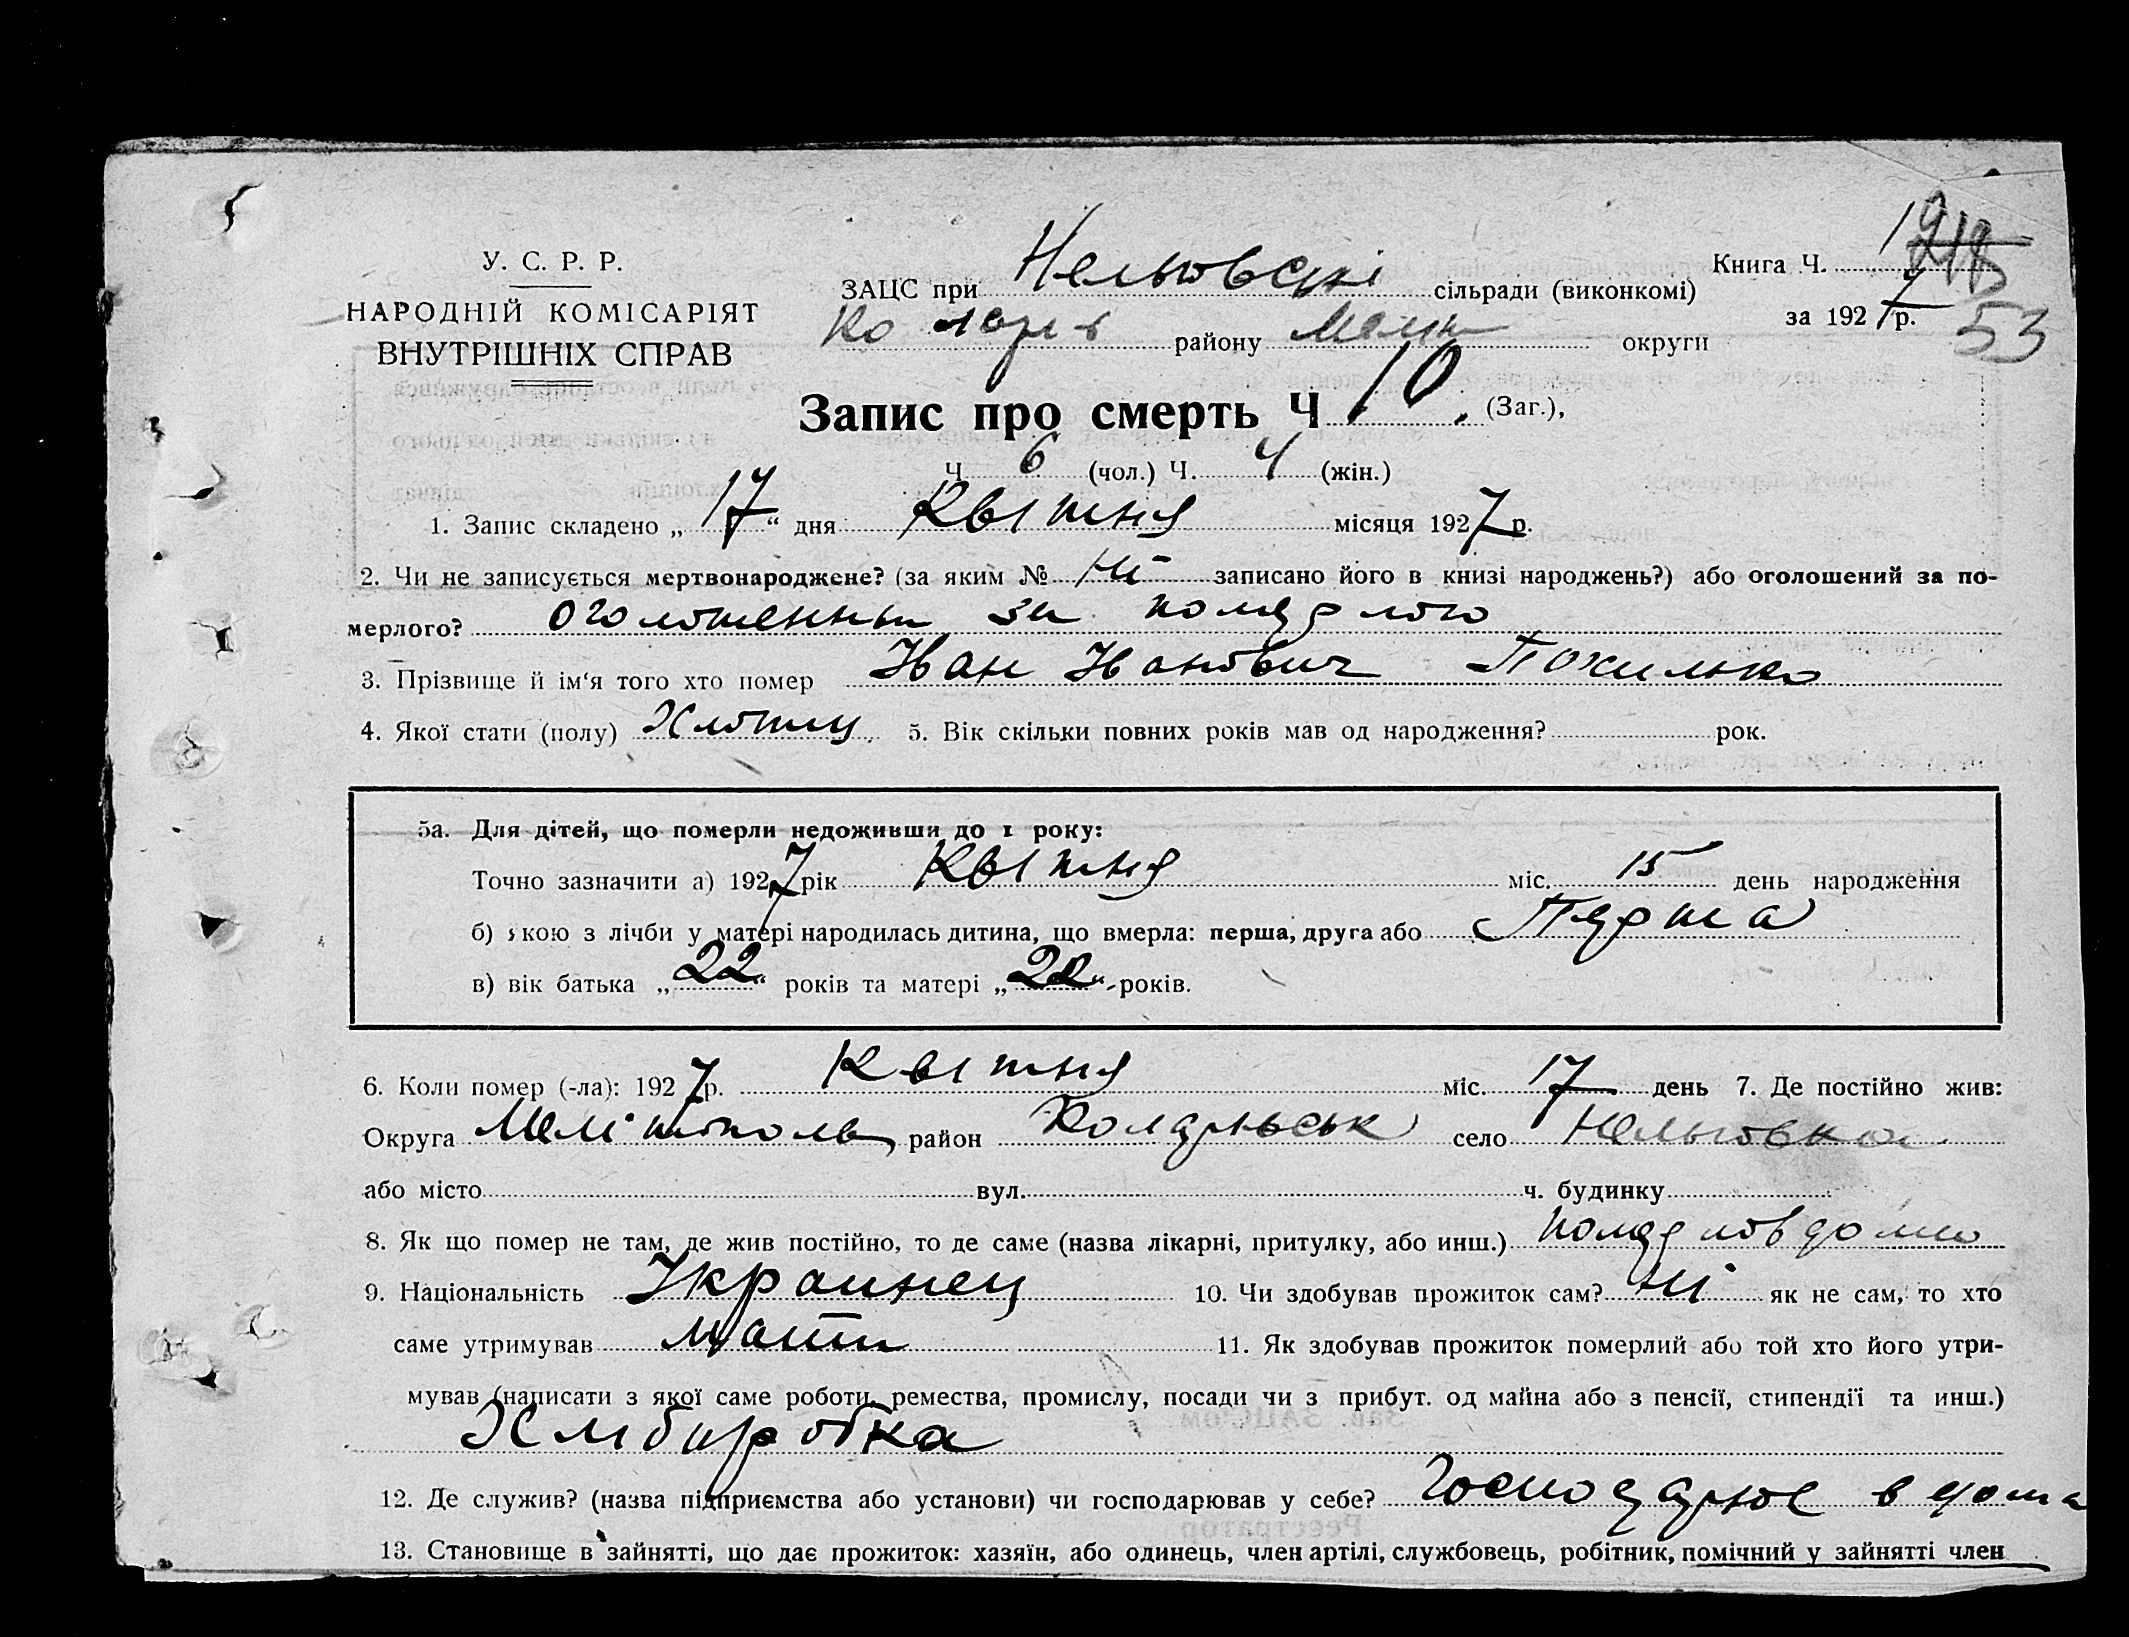 У. С. Р. Р.
НАРОДНІЙ КОМІСАРІЯТ
ВНУТРІШНІХ СПРАВ
ЗАЦС при Нельговскі сільради (виконкомі)
району Меліт округи
Книга Ч. 1
за 1927 р.
53
Запис про смерть Ч 10. (Заг.),
Ч 6 (чол.) Ч. 4 (жін.)
1. Запис складено „17“ дня Квітня місяця 1927 р.
2. Чи не записується мертвонароджене? (за яким № Ні записано його в книзі народжень?) або оголошений за по-
мерлого? оголошенный за померлого
3. Прізвище й ім‘я того хто помер Иван Иванович Похилько
4. Якої стати (полу) Хлопец 5. Вік скільки повних років мав од народження? рок.
5а. Для дітей, що померли недоживши до 1 року:
Точно зазначити а) 1927 рік Квітня міс. 15 день народження
б) якою з лічби у матері народилась дитина, що вмерла: перша, друга або Перша
в) вік батька „22“ років та матері „22“ років.
6. Коли помер (-ла): 1927 р. Квітня міс. 17 день 7. Де постійно жив:
Округа Мелітополь район село Нельговка
або місто вул. ч. будинку
8. Як що помер не там, де жив постійно, то де саме (назва лікарні, притулку, або инш.) помер дома
9. Національність Украинец 10. Чи здобував прожиток сам? Ні як не сам, то хто
саме утримував Мати 11. Як здобував прожиток померлий або той хто його утри-
мував (написати з якої саме роботи, ремества, промислу, посади чи з прибут. од майна або з пенсії, стипендії та инш.)
Хліборобка
12. Де служив? (назва підприємства або установи) чи господарював у себе? Господарює в дома
13. Становище в зайнятті, що дає прожиток: хазяїн, або одинець, член артілі, службовець, робітник, помічний у зайнятті член